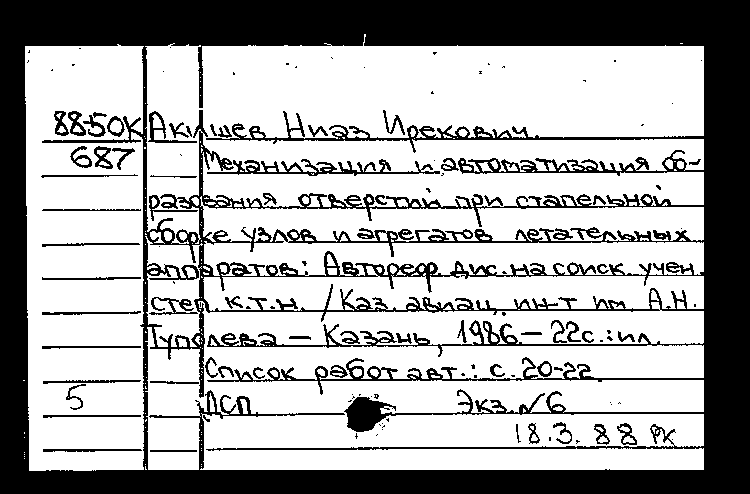 88-50К Акишев, Нияз Ирекович.
687 Механизация и автоматизация об-
разования отверстий при стапельной
сборке узлов и агрегатов летательных
аппаратов: Автореф. дис. на соиск. учен.
степ. к.т.н. / Каз. авиац. ин-т им. А.Н.
Туполева — Казань, 1986 — 22с.: ил.
Список работ авт.: с. 20-22
5 ДСП Экз. №6
18.3.88 РК